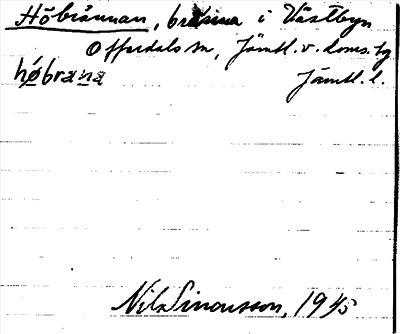 Höbrännan, bräsina i Västbyn
Offerdals sn, Jämtl. v. doms. tg
høbrana Jämtl. l.
Nils Simonsson, 1945